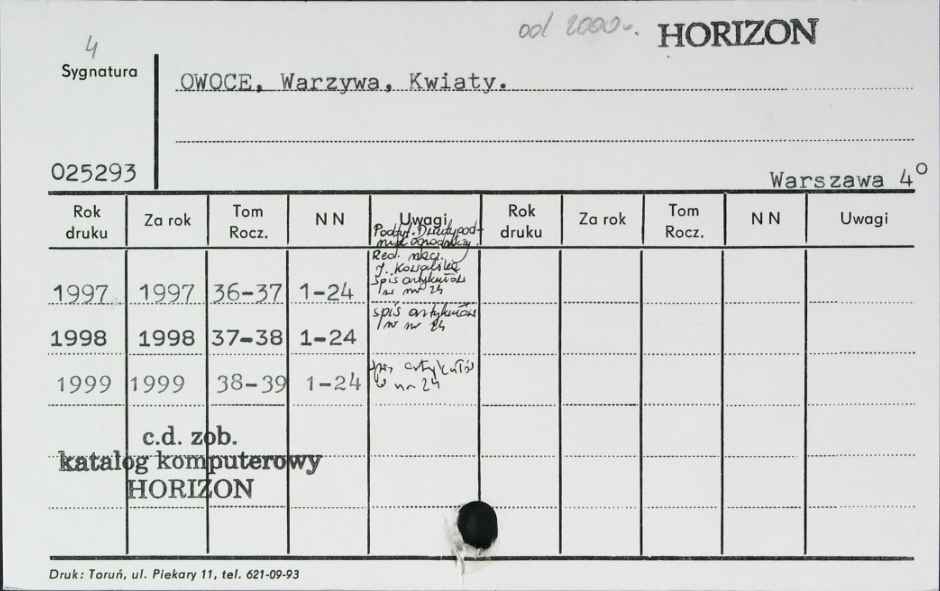 od 2000r. HORIZON
4
Sygnatura
OWOCE, Warzywa, Kwiaty.
025293
Warszawa 4°
Rok druku Za rok Tom Rocz. N N Uwagi Rok druku Za rok Tom Rocz. N N Uwagi
Podtyt. Dwutygod-
nik ogrodniczy.
Red. nacz.
J. Kowalska
spis artykułów
1997 1997 36-37 1-24 w nr 24
spis artykułów
1998 1998 37-38 1-24 w nr 24
spis artykułów
1999 1999 38-39 1-24 w nr 24
c.d. zob.
katalog komputerowy
HORIZON
Druk: Toruń, ul. Piekary 11, tel. 621-09-93